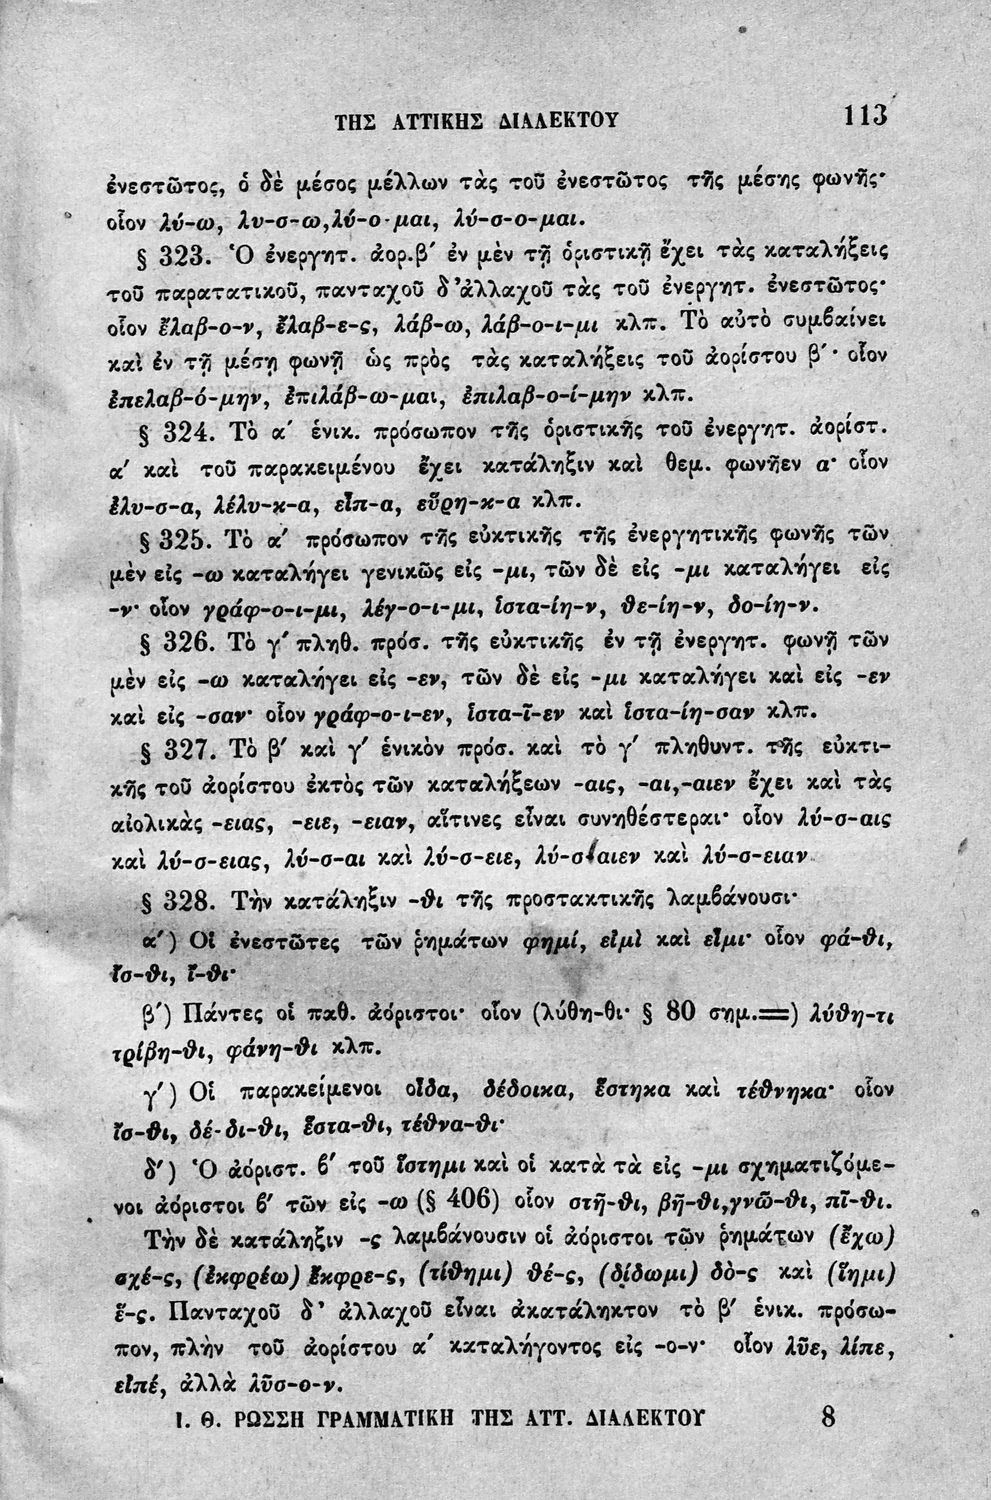 ΤΗΣ ΑΤΤΙΚΗΣ ΔΙΑΛΕΚΤΟΥ 113
ἐνεστῶτος, ὁ δὲ μέσος μέλλων τὰς τοῦ ἐνεστῶτος τῆς μέσης φωνῆς·
οἷον λύ-ω, λυ-σ-ω,λύ-ο-μαι, λύ-σ-ο-μαι.
§ 323. Ὁ ἐνεργητ. ἀορ.β΄ ἐν μὲν τῇ ὁριστικῇ ἔχει τὰς καταλήξεις
τοῦ παρατατικοῦ, πανταχοῦ δ’ἀλλαχοῦ τὰς τοῦ ἐνεργητ. ἐνεστῶτος·
οἷον ἔλαβ-ο-ν, ἔλαβ-ε-ς, λάβ-ω, λάβ-ο-ι-μι κλπ. Τὸ αὐτὸ συμβαίνει
καὶ ἐν τῇ μέσῃ φωνῇ ὡς πρὸς τὰς καταλήξεις τοῦ ἀορίστου β΄· οἷον
ἐπελαβ-ό-μην, ἐπιλάβ-ω-μαι, ἐπιλαβ-ο-ί-μην κλπ.
§ 324. Τὸ α΄ ἑνικ. πρόσωπον τῆς ὁριστικῆς τοῦ ἐνεργητ. ἀορίστ.
α΄ καὶ τοῦ παρακειμένου ἔχει κατάληξιν καὶ θεμ. φωνῆεν α· οἷον
ἔλυ-σ-α, λέλυ-κ-α, εἶπ-α, εὕρη-κ-α κλπ.
§ 325. Τὸ α΄ πρόσωπον τῆς εὐκτικῆς τῆς ἐνεργητικῆς φωνῆς τῶν
μὲν εἰς -ω καταλήγει γενικῶς εἰς -μι, τῶν δὲ εἰς -μι καταλήγει εἰς
-ν· οἷον γράφ-ο-ι-μι, λέγ-ο-ι-μι, ἱστα-ίη-ν, θε-ίη-ν, δο-ίη-ν.
§ 326. Τὸ γ΄ πληθ. πρόσ. τῆς εὐκτικῆς ἐν τῇ ἐνεργητ. φωνῇ τῶν
μὲν εἰς -ω καταλήγει εἰς -εν, τῶν δὲ εἰς -μι καταλήγει καὶ εἰς -εν
καὶ εἰς -σαν· οἷον γράφ-ο-ι-εν, ἱστα-ῖ-εν καὶ ἱστα-ίη-σαν κλπ.
§ 327. Τὸ β΄ καὶ γ΄ ἑνικὸν πρόσ. καὶ τὸ γ΄ πληθυντ. τῆς εὐκτι-
κῆς τοῦ ἀορίστου ἐκτὸς τῶν καταλήξεων -αις, -αι,-αιεν ἔχει καὶ τὰς
αἰολικὰς -ειας, -ειε, -ειαν, αἵτινες εἶναι συνηθέστεραι· οἷον λύ-σ-αις
καὶ λύ-σ-ειας, λύ-σ-αι καὶ λύ-σ-ειε, λύ-σ-αιεν καὶ λύ-σ-ειαν.
§ 328. Τὴν κατάληξιν -θι τῆς προστακτικῆς λαμβάνουσι·
α΄) Οἱ ἐνεστῶτες τῶν ῥημάτων φημί, εἰμὶ καὶ εἶμι· οἷον φά-θι,
ἴσ-θι, ἴ-θι·
β΄) Πάντες οἱ παθ. ἀόριστοι· οἷον (λύθη-θι· § 80 σημ.=) λύθη-τι
τρίβη-θι, φάνη-θι κλπ.
γ΄) Οἱ παρακείμενοι οἶδα, δέδοικα, ἕστηκα καὶ τέθνηκα· οἷον
ἴσ-θι, δέ-δι-θι, ἕστα-θι, τέθνα-θι·
δ΄) Ὁ ἀόριστ. β΄ τοῦ ἵστημι καὶ οἱ κατὰ τὰ εἰς -μι σχηματιζόμε-
νοι ἀόριστοι β΄ τῶν εἰς -ω (§ 406) οἷον στῆ-θι, βῆ-θι,γνῶ-θι, πῖ-θι.
Τὴν δὲ κατάληξιν -ς λαμβάνουσιν οἱ ἀόριστοι τῶν ῥημάτων (ἔχω)
σχέ-ς, (ἐκφρέω) ἔκφρε-ς, (τίθημι) θέ-ς, (δίδωμι) δὸ-ς καὶ (ἵημι)
ἕ-ς. Πανταχοῦ δ’ ἀλλαχοῦ εἶναι ἀκατάληκτον τὸ β΄ ἑνικ. πρόσω-
πον, πλὴν τοῦ ἀορίστου α΄ καταλήγοντος εἰς -ο-ν· οἷον λῦε, λίπε,
εἰπέ, ἀλλὰ λῦσ-ο-ν.
Ι. Θ. ΡΩΣΣΗ ΓΡΑΜΜΑΤΙΚΗ ΤΗΣ ΑΤΤ. ΔΙΑΛΕΚΤΟΥ 8